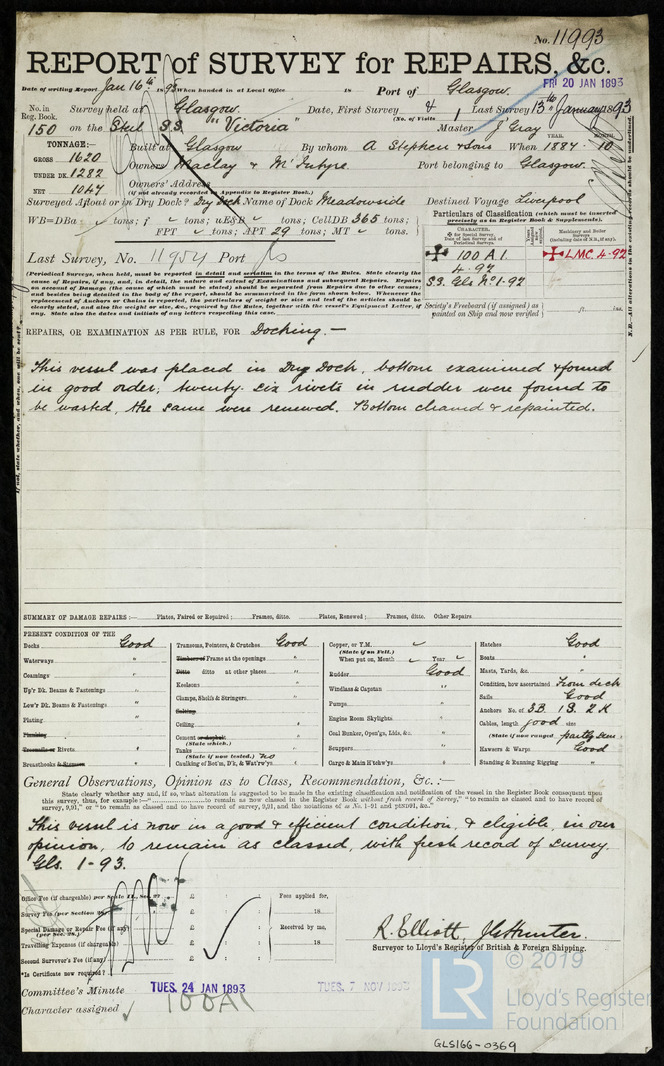 No. 11993
REPORT of SURVEY for REPAIRS, &c.
Date of writing Report Jan 16th 1893 When handed in at Local Office 18 Port of Glasgow.
FRI 20 JAN 1893
No. in Reg. Book. 150
Survey held at Glasgow. Date, First Survey 4 Last Survey 13th January 1893
(No. of Visits 1
on the Steel S.S. "Victoria" Master J. Gray
TONNAGE:—
GROSS 1620
UNDER DK. 1282
NET 1047
Built at Glasgow By whom A Stephen & Sons When 1884 - 10
YEAR. MONTH
Owners Maclay & McIntyre Port belonging to Glasgow.
Owners' Address
(if not already recorded in Appendix to Register Book.)
Surveyed Afloat or in Dry Dock? Dry Dock Name of Dock Meadowside Destined Voyage Liverpool
WB=DBa tons; f tons; uE&B tons; CellDB 365 tons;
FPT tons; APT 29 tons; MT tons.
Particulars of Classification (which must be inserted precisely as in Register Book & Supplements).
Last Survey, No. 11954 Port Gls
100 A1.
4.92
S.S. Gls No 1-92
LMC. 4-92
Machinery and Boiler Surveys (including date of N.B., if any).
(Periodical Surveys, when held, must be reported in detail and seriatim in the terms of the Rules. State clearly the
cause of Repairs, if any, and, in detail, the nature and extent of Examinations and subsequent Repairs. Repairs
on account of Damage (the cause of which must be stated) should be separated from Repairs due to other causes;
and besides being detailed in the body of the report, should be summarised in the form shown below. Whenever the
replacement of Anchors or Chains is reported, the particulars of weight or size and test of the articles should be
clearly stated, and also the weight or size, &c., required by the Rules, together with the vessel's Equipment Letter, if
any. State also the dates and initials of any letters respecting this case.
Society's Freeboard (if assigned) as painted on Ship and now verified ft. ins.
N.B. All alterations in the existing records should be underlined.
REPAIRS, OR EXAMINATION AS PER RULE, FOR Docking.—
This vessel was placed in Dry Dock, bottom examined & found
in good order; twenty-six rivets in rudder were found to
be wasted, the same were renewed. Bottom cleaned & repainted.
SUMMARY OF DAMAGE REPAIRS:— Plates, Faired or Repaired; Frames, ditto. Plates, Renewed; Frames, ditto. Other Repairs
PRESENT CONDITION OF THE
Decks Good
Waterways "
Coamings "
Up'r Dk. Beams & Fastenings "
Low'r Dk. Beams & Fastenings "
Plating "
Planking
Treenails or Rivets "
Breasthooks & Stemson "
Transoms, Pointers, & Crutches Good
Timbers or Frame at the openings "
Ditto ditto at other places "
Keelsons "
Clamps, Shelfs & Stringers "
Salting
Ceiling "
Cement or Asphalt "
(State which.)
Tanks
(State if now tested.) no
Caulking of Bot'm, D'k, & Wat'rw'ys "
Copper, or Y.M.
(State if on Felt.)
When put on, Month Year
Rudder Good
Windlass & Capstan "
Pumps "
Engine Room Skylights "
Coal Bunker, Open'gs, Lids, &c. "
Scuppers "
Cargo & Main H'tchw'ys "
Hatches Good
Boats "
Masts, Yards, &c. "
Condition, how ascertained From deck
Sails Good
Anchors No. of 3B. 1S. 2K
Cables, length good size
(State if now ranged) partly seen
Hawsers & Warps Good
Standing & Running Rigging "
General Observations, Opinion as to Class, Recommendation, &c.:—
State clearly whether any and, if so, what alteration is suggested to be made in the existing classification and notification of the vessel in the Register Book consequent upon
this survey, thus, for example:—"............to remain as now classed in the Register Book without fresh record of Survey," "to remain as classed and to have record of
survey, 9,91," or "to remain as classed and to have record of survey, 9,91, and the notations of ss No. 1-91 and ptS191, &c."
This vessel is now in a good & efficient condition, & eligible, in our
opinion, to remain as classed, with fresh record of survey.
Gls. 1-93.
Office Fee (if chargeable) per Scale £
Survey Fee (per Section 28) £
Special Damage or Repair Fee (if any) £
(per Sec. 28.)
Travelling Expenses (if chargeable) £
Second Surveyor's Fee (if any) £
*Is Certificate now required?
Fees applied for,
18
Received by me,
18
R. Elliott, J.G. Hunter.
Surveyor to Lloyd's Register of British & Foreign Shipping.
Committee's Minute TUES. 24 JAN 1893 TUES. 7 NOV 1893
Character assigned 100A1
© 2019
LR
Lloyd's Register
Foundation
GLS166-0369